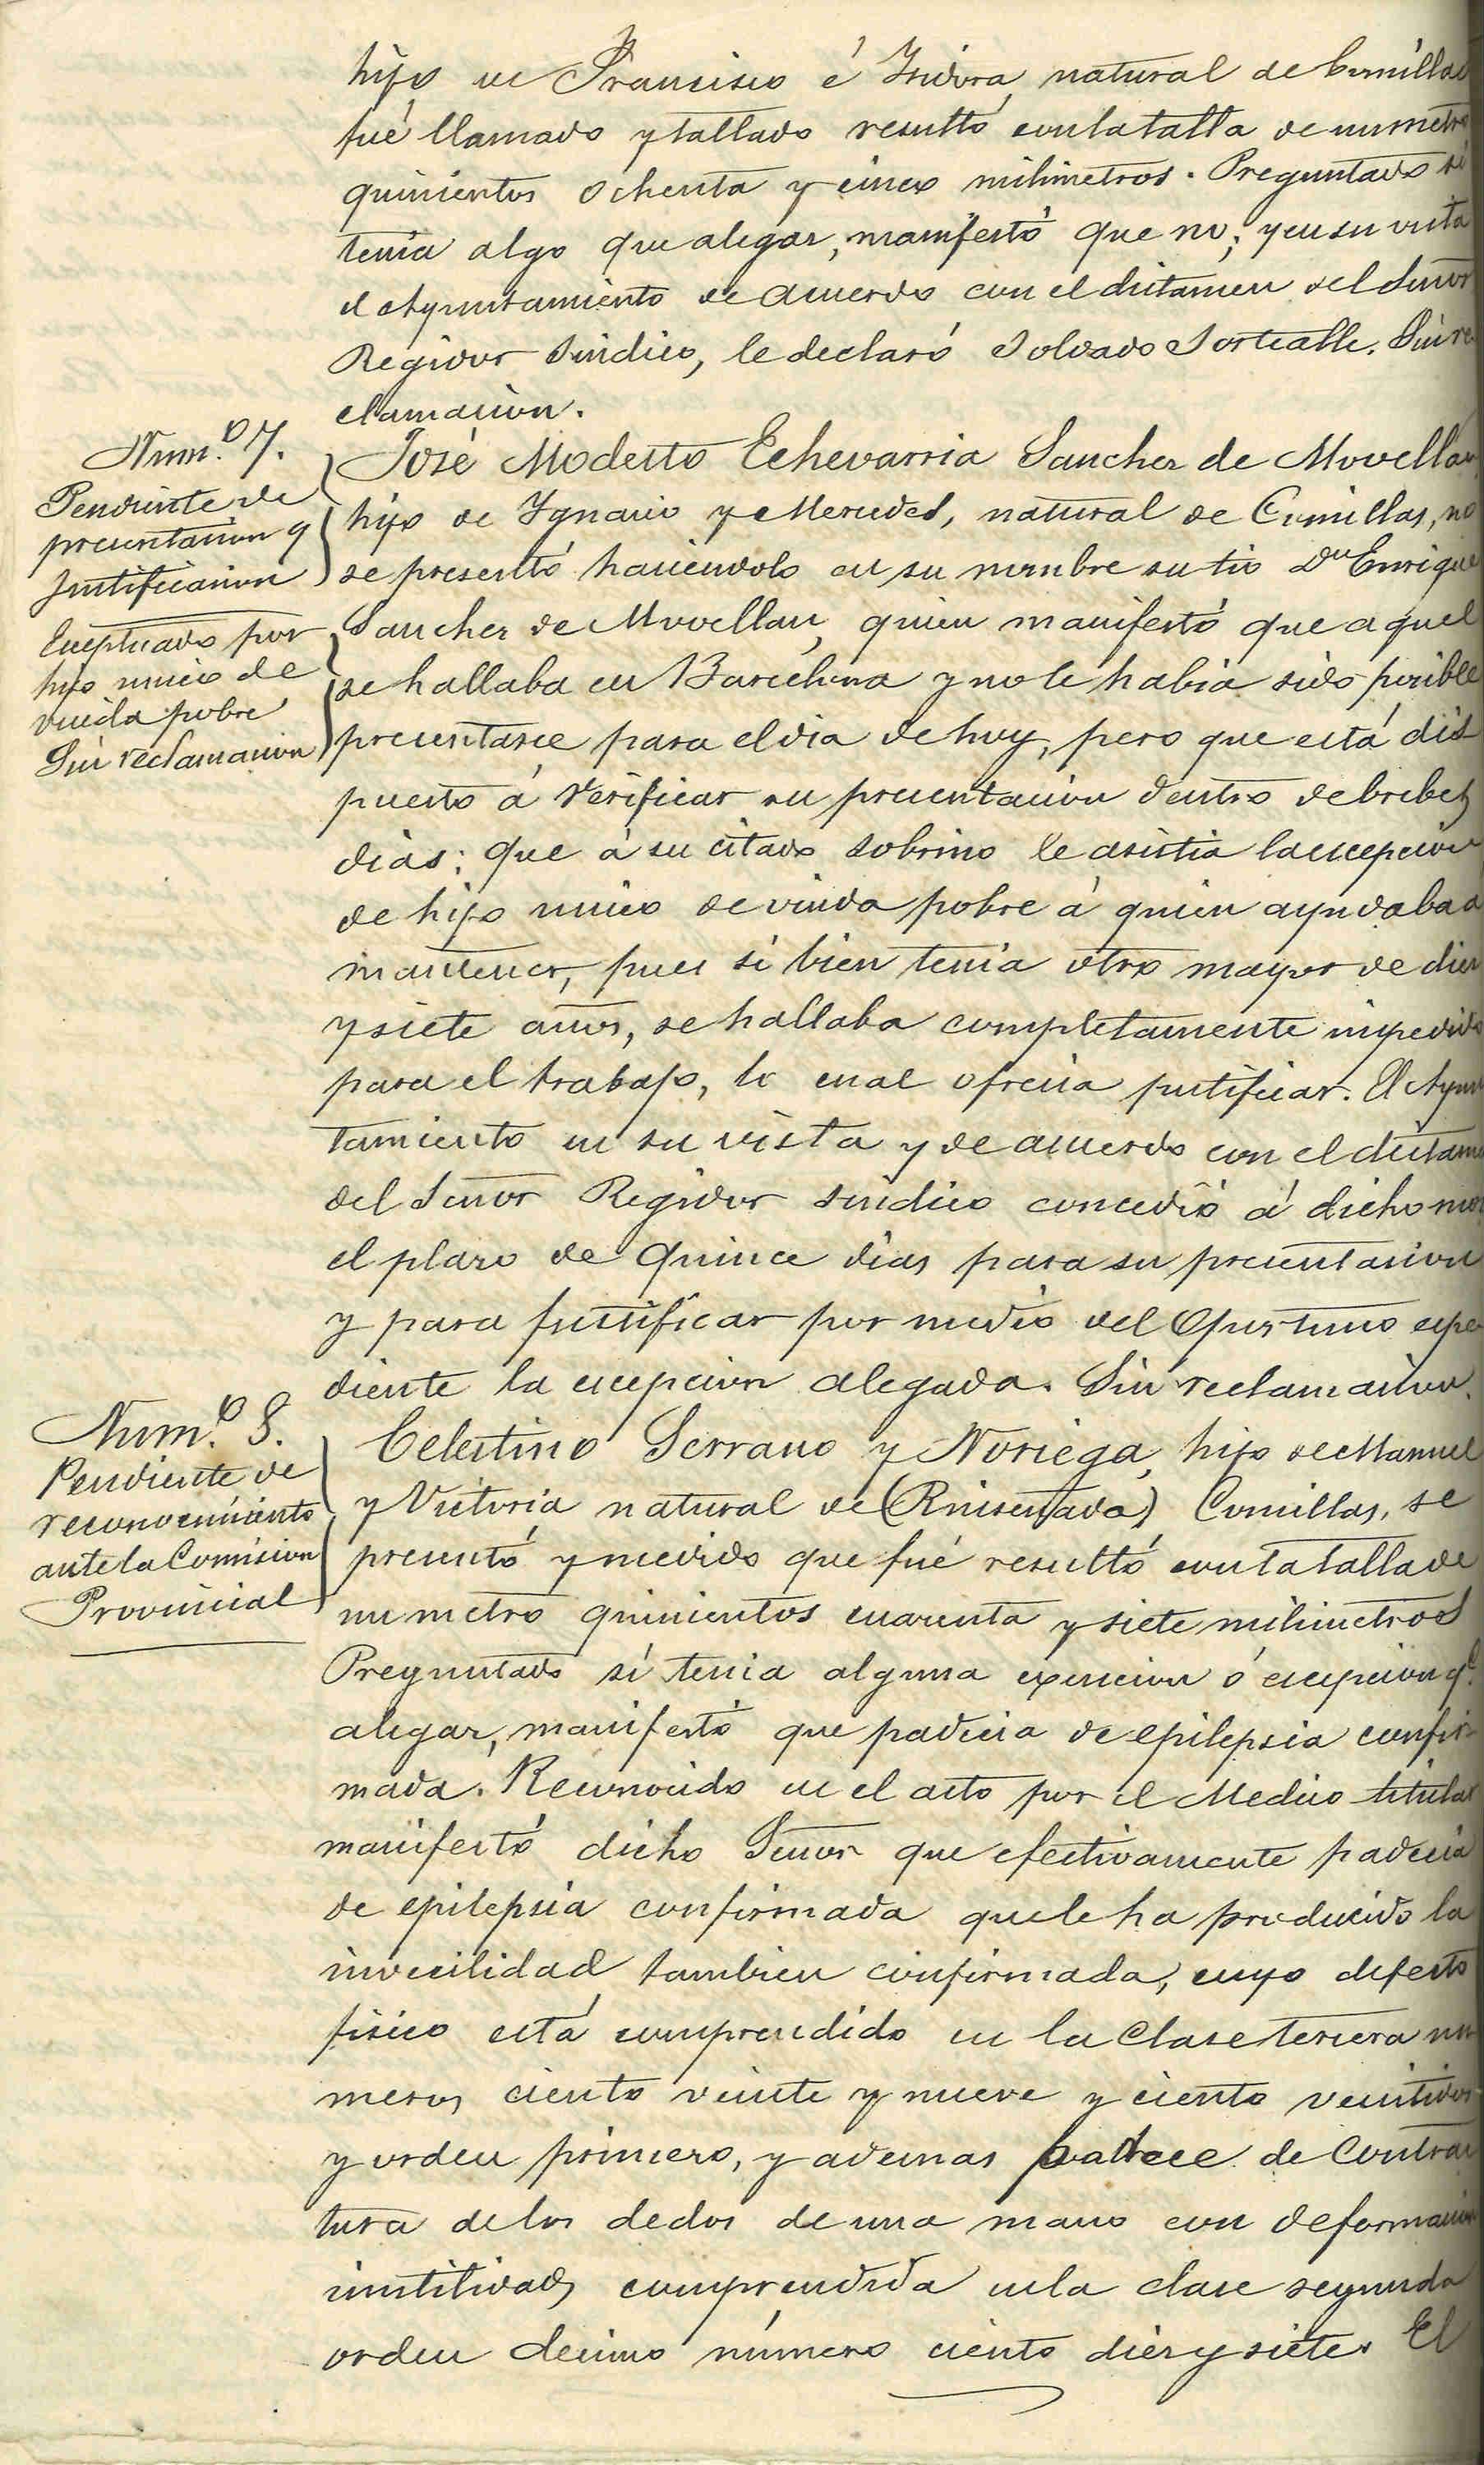 hijo de Francisco é Ysidora, natural de Comillas
fué llamado y tallado resultó con la talla de un metro
quinientos ochenta y cinco milimetros. Preguntado si
tenia algo que alegar, manifestó que no; y en su vista
el Ayuntamiento de acuerdo con el dictamen del Señor
Regidor Sindico, le declaró Soldado Sorteable. Sin re
clamacion.
Num.º 7.
Pendiente de
presentacion y
Justificacion
Eceptuado por
hijo unico de
viuda pobre
Sin reclamacion
José Modesto Echevarria Sanchez de Movellan
hijo de Ygnacio y Mercedes, natural de Comillas, no
se presentó haciendolo en su nombre su tio Dn Enrique
Sanchez de Movellan, quien manifestó que aquel
se hallaba en Barcelona y no le habia sido posible
presentarse para el dia de hoy, pero que está dis
puesto á verificar su presentacion dentro de brebes
dias; que á su citado sobrino le asistia la escepcion
de hijo unico de viuda pobre á quien ayudaba á
mantener, pues si bien tenia otro mayor de diez
y siete años, se hallaba completamente impedido
para el trabajo, lo cual ofrecia justificar. El Ayun
tamiento en su vista y de acuerdo con el dictamen
del Señor Regidor sindico concedió á dicho mozo
el plazo de quince dias para su presentacion
y para justificar por medio del oportuno espe
diente la escepcion alegada. Sin reclamacion.
Num.º 8.
Pendiente de
reconocimiento
ante la Comision
Provincial
Celestino Serrano y Noriega, hijo de Manuel
y Victoria natural de (Ruiseñada) Comillas, se
presentó y medido que fué resultó con la talla de
un metro quinientos cuarenta y siete milimetros
Preguntado si tenia alguna exencion ó escepcion q.e
alegar, manifestó que padecia de epilepsia confir
mada. Reconocido en el acto por el Medico titular
manifestó dicho Señor que efectivamente padecia
de epilepsia confirmada que le ha producido la
invecilidad tambien confirmada, cuyo defecto
fisico está comprendido en la Clase tercera nu
meros ciento veinte y nueve y ciento veintidos
y orden primero, y ademas padece de Contrac
tura de los dedos de una mano con deformacion
inutilidad comprendida en la clase segunda
orden decimo número ciento diez y siete. El